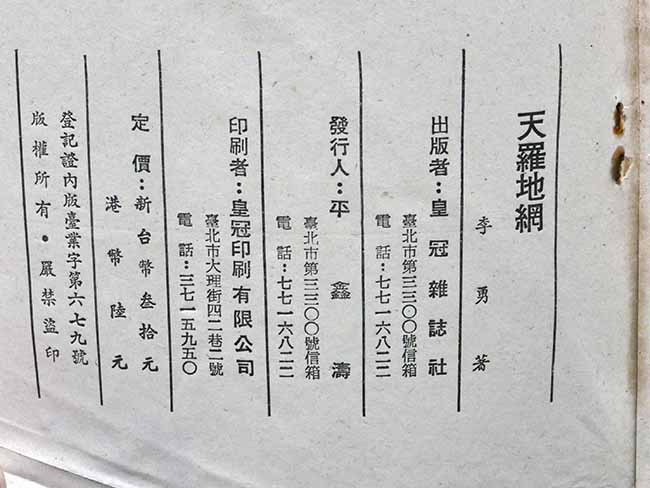 天羅地網
李勇著
出版者：皇冠雜誌社
臺北市第三三〇〇號信箱
電話：七七一六八二二
發行人：平鑫濤
臺北市第三三〇〇號信箱
電話：七七一六八二二
印刷者：皇冠印刷有限公司
臺北市大理街四二巷二號
電話：三七一五九五〇
定價：新台幣叁拾元
港幣陸元
登記證內版臺業字第六七九號
版權所有・嚴禁盜印